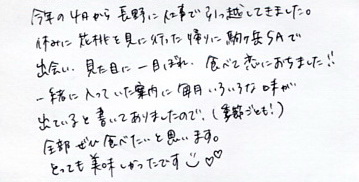 今年の4月から長野に仕事で引っ越してきました。
休みに花桃を見に行った帰りに駒ヶ岳SAで
出会い、見た目に一目ぼれ、食べて恋におちました!!
一緒に入っていた案内に毎月いろいろな味が
出ていると書いてありましたので、(季節ごとも!)
全部ぜひ食べたいと思います。
とっても美味しかったです☺♡♡